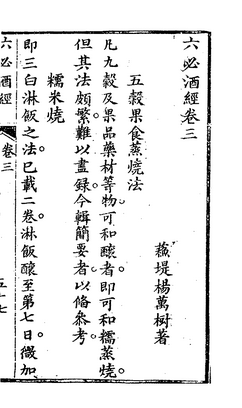 六必酒經卷三
蘓堤楊萬樹著
五穀果食蒸燒法
凡九穀及果品藥材等物可和釀者。即可和糯蒸燒。
但其法頗繁。難以盡録。今輯簡要者。以俻参考。
糯米燒
即三白淋飯之法。已載二卷。淋飯釀至第七日。微加
六必酒經 卷三